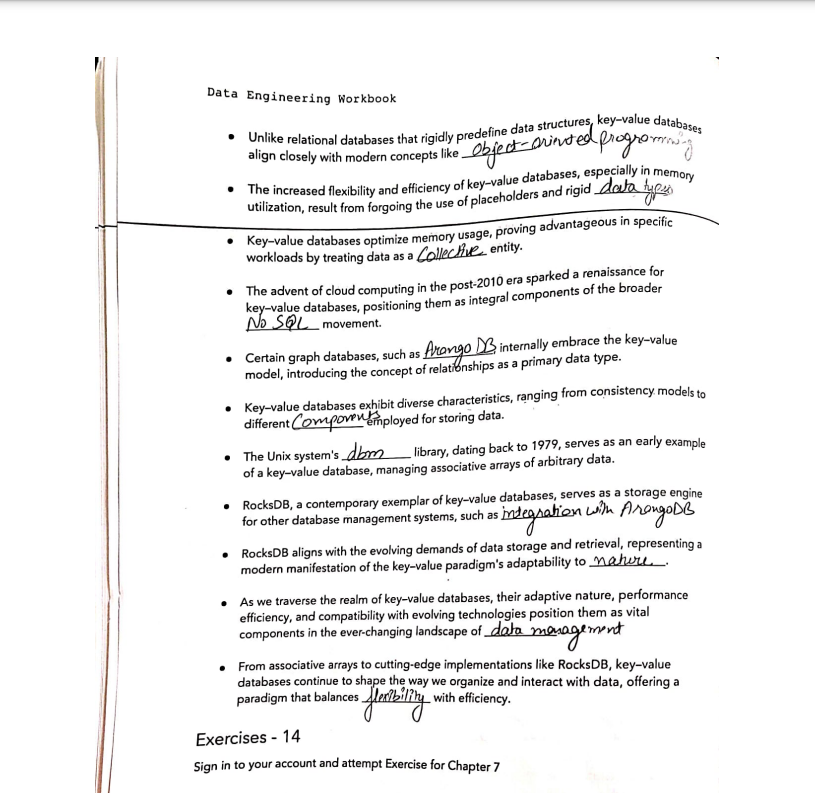 Data Engineering Workbook
• Unlike relational databases that rigidly predefine data structures, key-value databases
align closely with modern concepts like Object-oriented programming
• The increased flexibility and efficiency of key-value databases, especially in memory
utilization, result from forgoing the use of placeholders and rigid data types
• Key-value databases optimize memory usage, proving advantageous in specific
workloads by treating data as a Collective entity.
• The advent of cloud computing in the post-2010 era sparked a renaissance for
key-value databases, positioning them as integral components of the broader
No SQL movement.
• Certain graph databases, such as Arango DB internally embrace the key-value
model, introducing the concept of relationships as a primary data type.
• Key-value databases exhibit diverse characteristics, ranging from consistency models to
different Components employed for storing data.
• The Unix system's dbm library, dating back to 1979, serves as an early example
of a key-value database, managing associative arrays of arbitrary data.
• RocksDB, a contemporary exemplar of key-value databases, serves as a storage engine
for other database management systems, such as integration with ArangoDB
• RocksDB aligns with the evolving demands of data storage and retrieval, representing a
modern manifestation of the key-value paradigm's adaptability to nature.
• As we traverse the realm of key-value databases, their adaptive nature, performance
efficiency, and compatibility with evolving technologies position them as vital
components in the ever-changing landscape of data management
• From associative arrays to cutting-edge implementations like RocksDB, key-value
databases continue to shape the way we organize and interact with data, offering a
paradigm that balances flexibility with efficiency.
Exercises - 14
Sign in to your account and attempt Exercise for Chapter 7